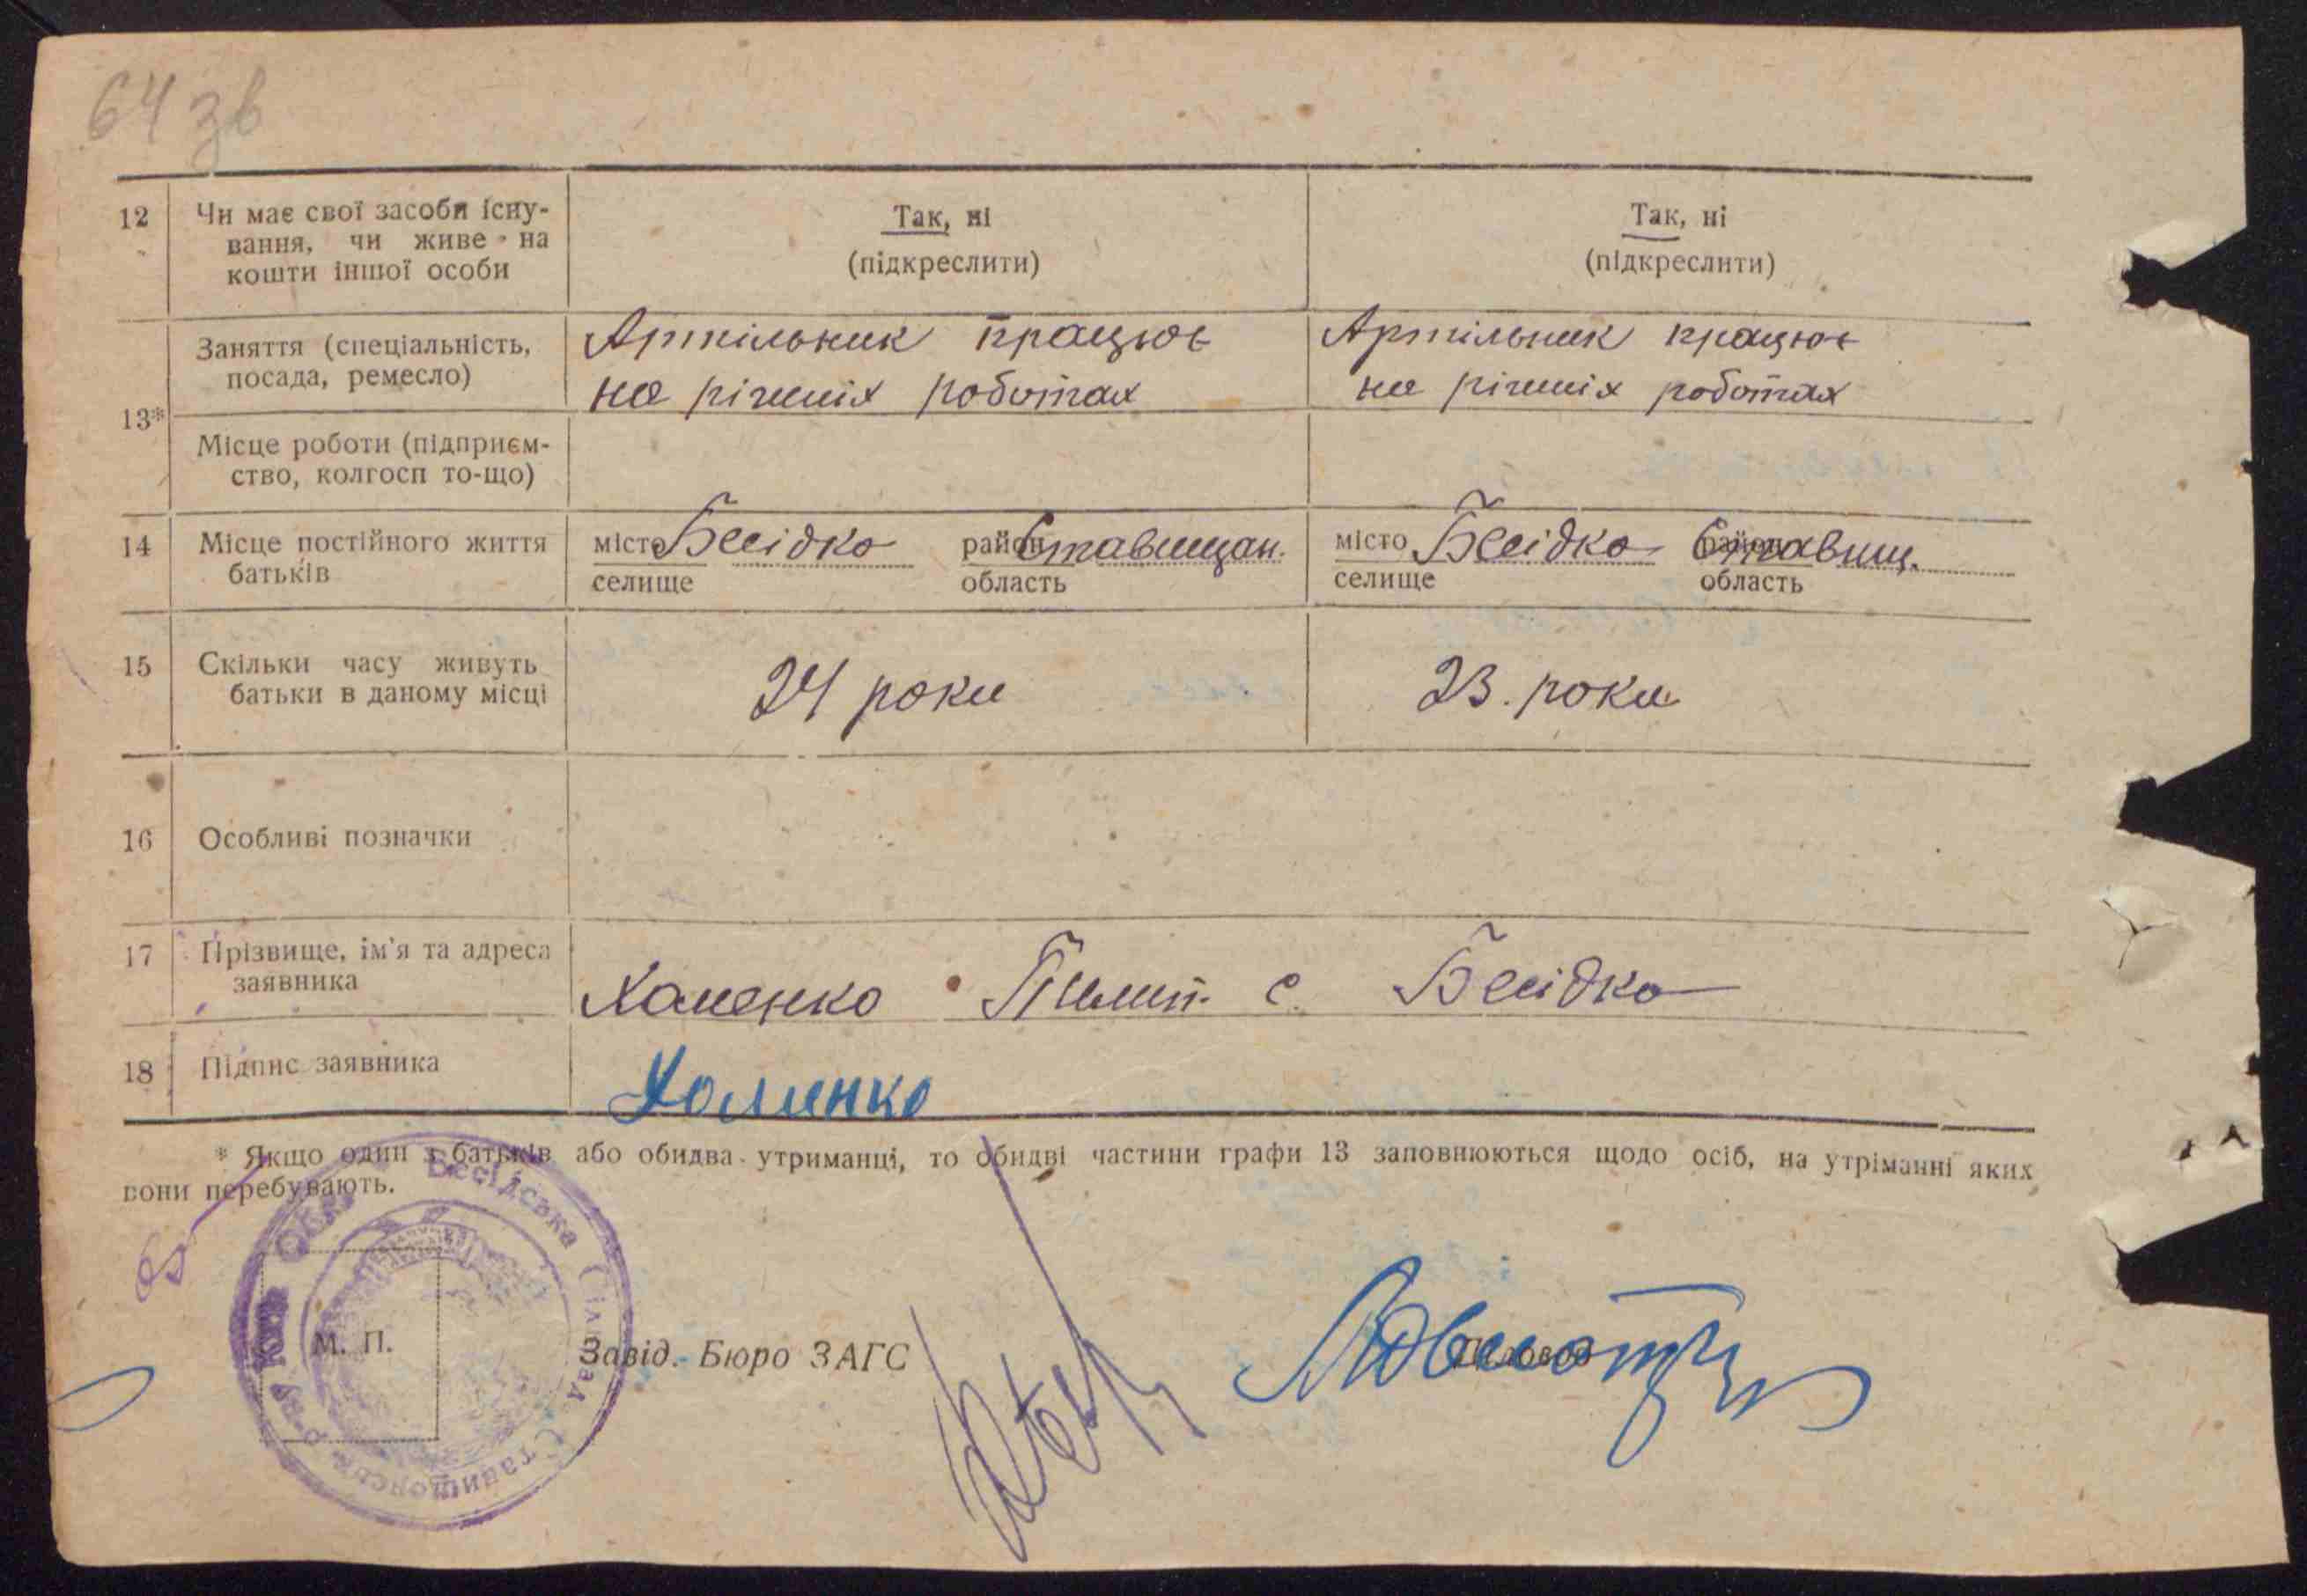 64 зв
12 Чи має свої засоби існу-
вання, чи живе на
кошти іншої особи
Так, ні
(підкреслити)
Так, ні
(підкреслити)
13*
Заняття (спеціальність,
посада, ремесло)
Артільник працює
на різних роботах
Артільник працює
на різних роботах
Місце роботи (підприєм-
ство, колгосп то-що)
14 Місце постійного життя
батьків
місто Бесідко район Ставищан.
селище область
місто Бесідко район Ставищ.
селище область
15 Скільки часу живуть
батьки в даному місці
24 роки
23. роки
16 Особливі позначки
17 Прізвище, ім'я та адреса
заявника
Хоменко Пилип. с. Бесідко
18 Підпис заявника
Хоменко
* Якщо один з батьків або обидва утриманці, то обидві частини графи 13 заповнюються щодо осіб, на утріманні яких
вони перебувають.
Бесідська Сільрад
М. П.
Завід. Бюро ЗАГС
Діловод